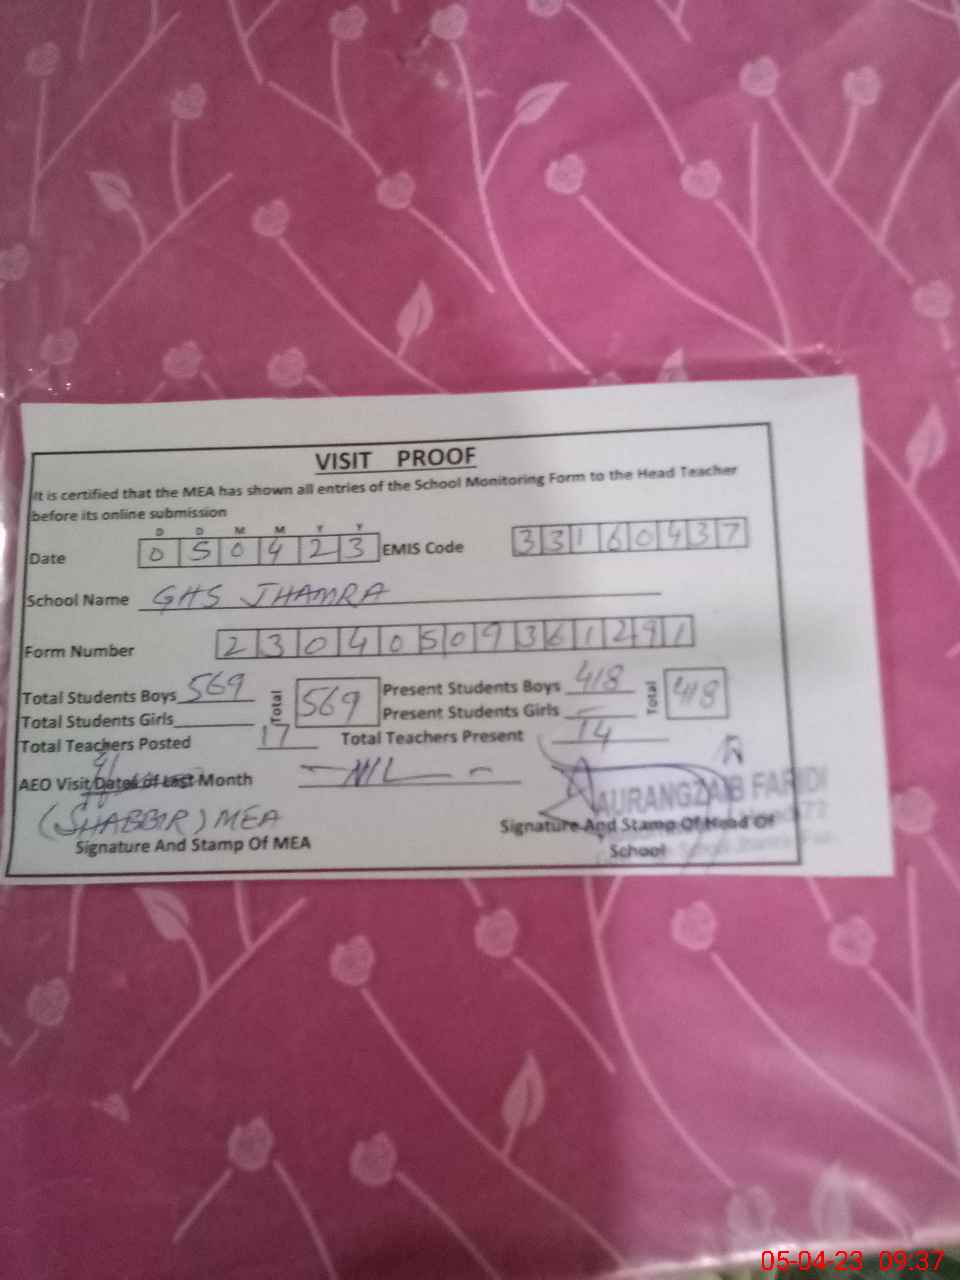 VISIT PROOF
It is certified that the MEA has shown all entries of the School Monitoring Form to the Head Teacher
before its online submission
D D M M Y Y
Date 050423 EMIS Code 33160437
School Name GHS JHAMRA
Form Number 23040509361291
Total Students Boys 569 Total 569 Present Students Boys 418 Total 418
Total Students Girls Present Students Girls -
Total Teachers Posted 17 Total Teachers Present 14
AEO Visit Dates of Last Month - NIL -
(SHABBIR) MEA AURANGZAIB FARIDI
Signature And Stamp Of MEA Signature And Stamp Of Head Of
School
05-04-23 09:37